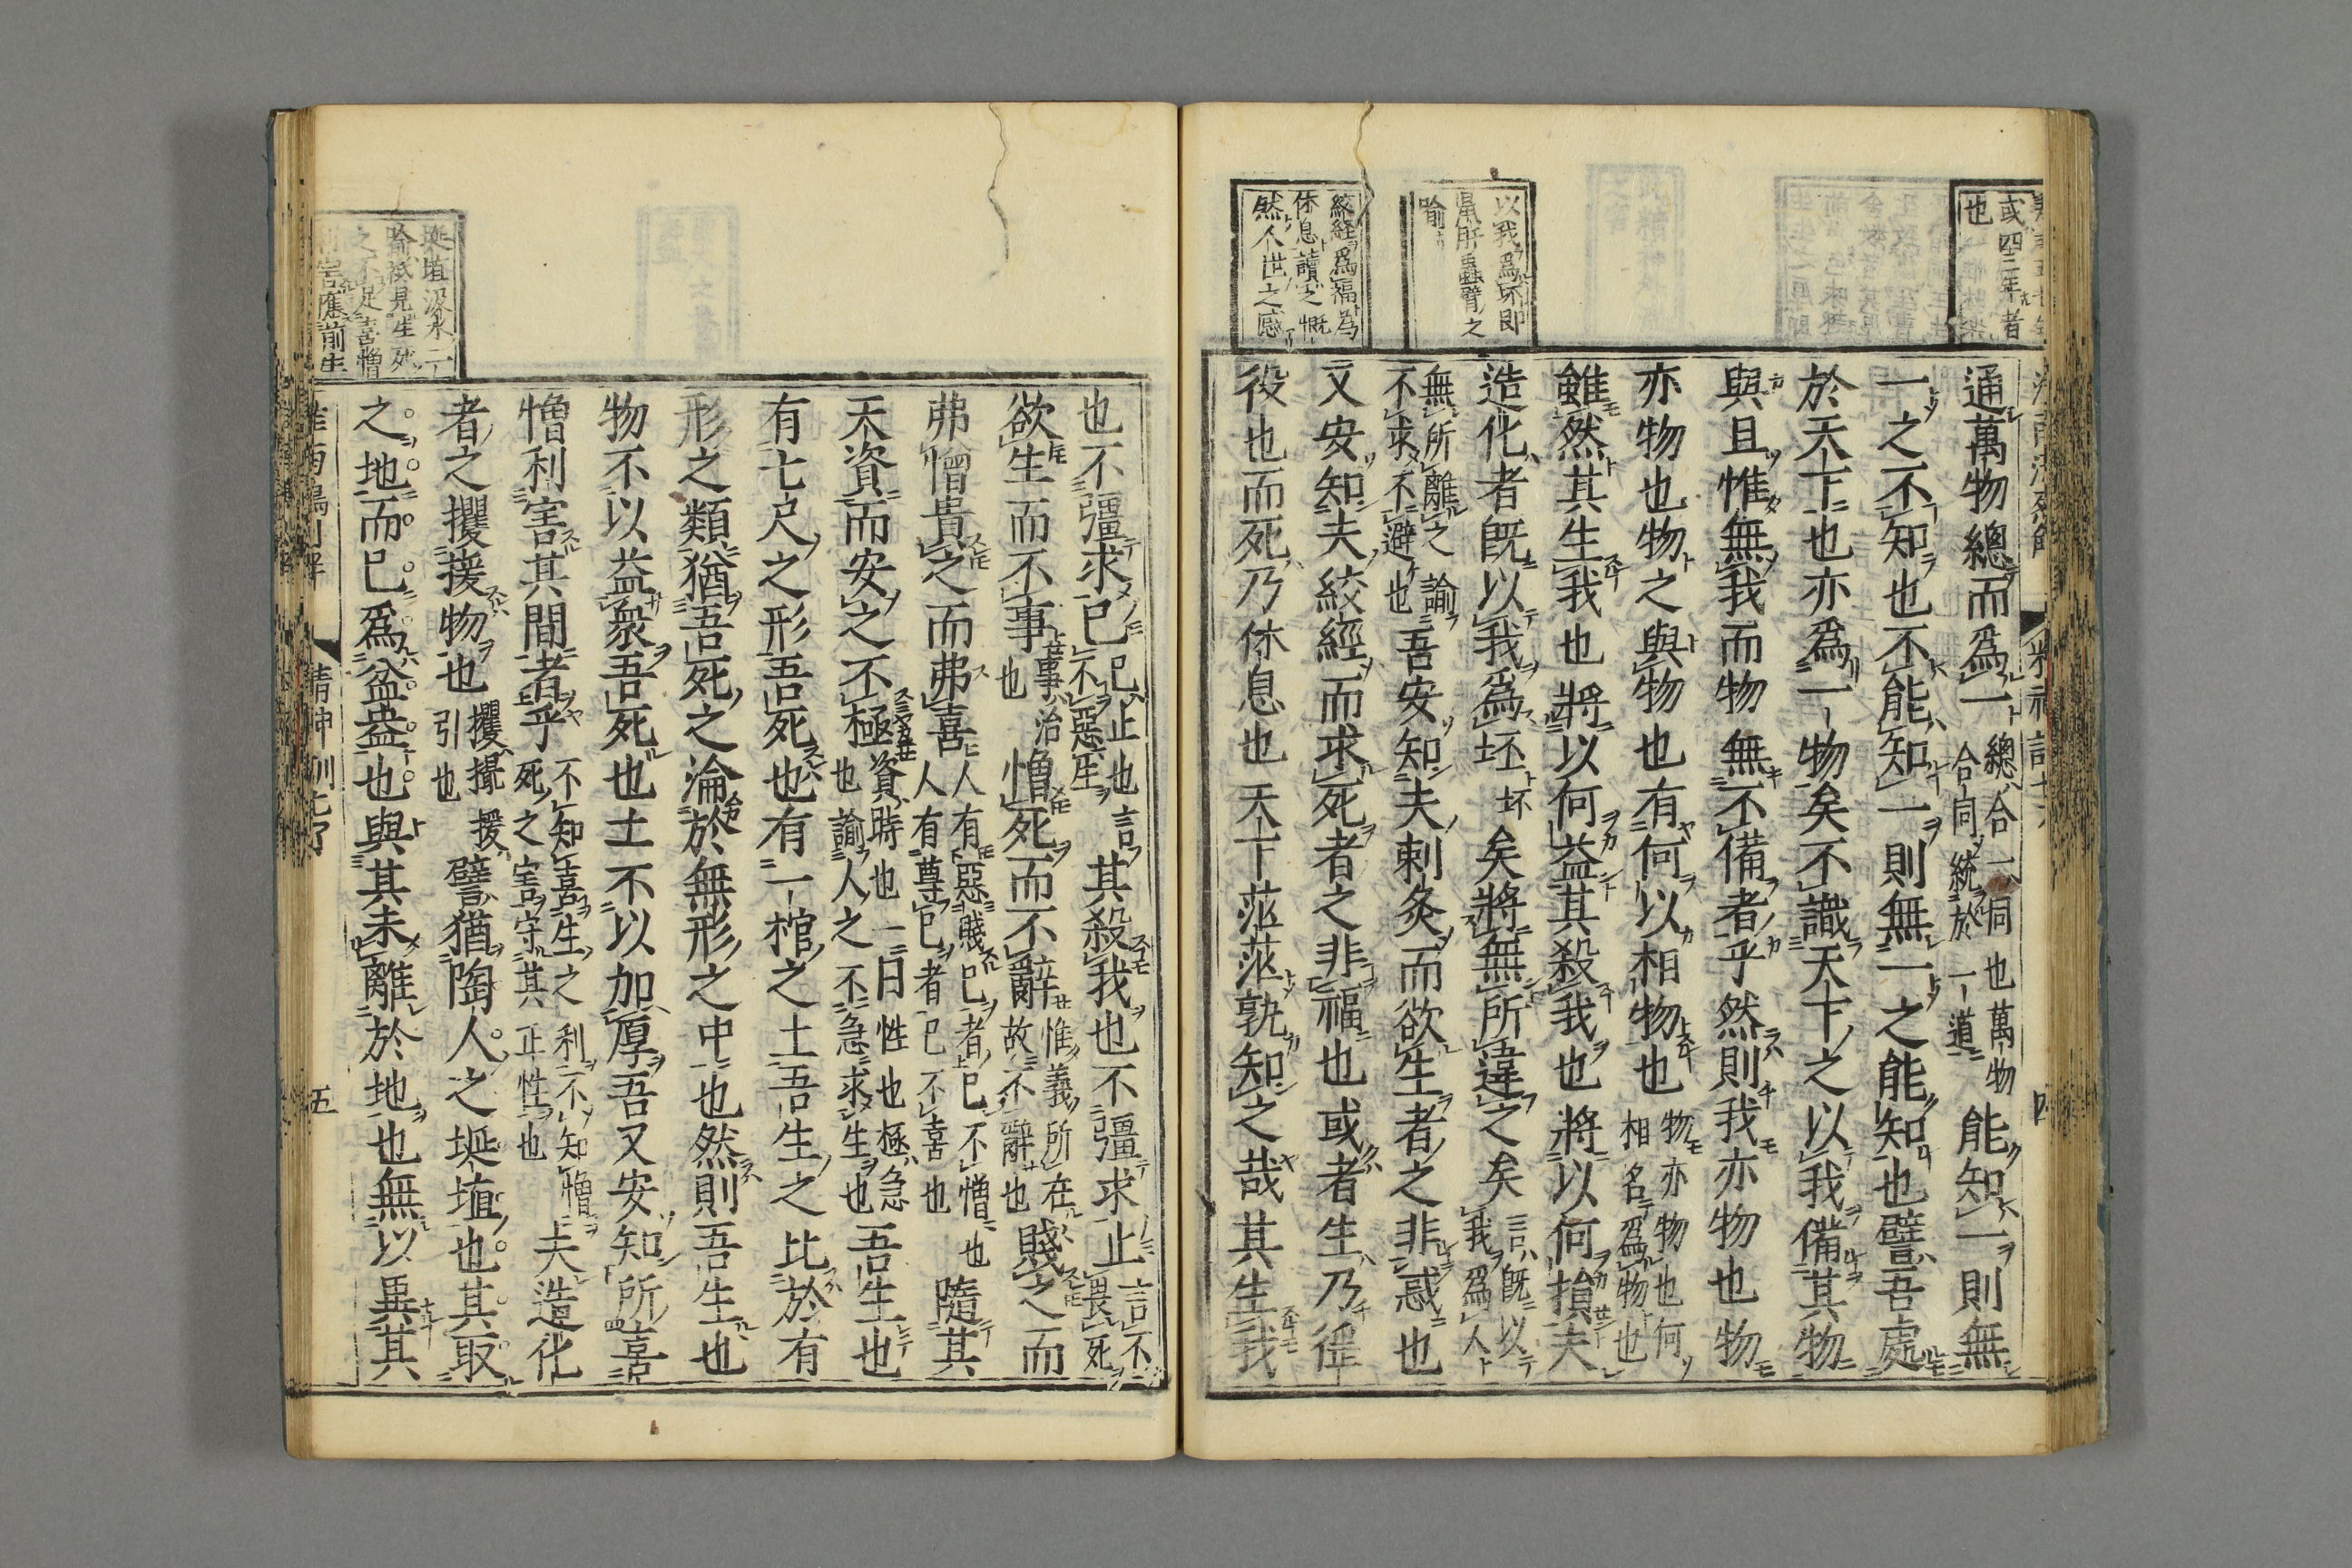 或四二年者
也
以我爲坏即
鼠肝蟲臂之
喻
絞経爲福為
休息讀之慨
然人世之感
通萬物總而爲一總合一同也萬物合同統於一道能知一則無
一之不知也不能知一則無一之能知也譬吾處
於天下也亦爲一物矣不識天下之以我備其物
與且惟無我而物無不備者乎然則我亦物也物
亦物也物之與物也有何以相物也物亦物也何相名爲物也
雖然其生我也將以何益其殺我也將以何損夫
造化者旣以我爲坯坏矣將無所違之矣言旣以我爲人
無所離之喻不求不避也吾安知夫刺灸而欲生者之非惑也
又安知夫絞經而求死者之非福也或者生乃徭
役也而死乃休息也天下茫茫孰知之哉其生我
四
也不彊求已已止也言不惡生其殺我也不彊求止言不畏死
欲生而不事事治也憎死而不辭惟義所在故不辭也賤之而
弗憎貴之而弗喜人有惡賤己者己不憎也人有尊己者己不喜也隨其
天資而安之不極資時也一曰性也極急也諭人之不急求生也吾生也
有七尺之形吾死也有一棺之土吾生之比於有
形之類猶吾死之淪於無形之中也然則吾生也
物不以益衆吾死也土不以加厚吾又安知所喜
憎利害其間者乎不知喜生之利不知憎死之害守其正性也夫造化
者之攫援物也攫撮援引也譬猶陶人之埏埴也其取
之地而已爲盆盎也與其未離於地也無以異其
埏埴汲水二
喻祇見生死
之不足喜憎
利害應前生
精神訓七
五